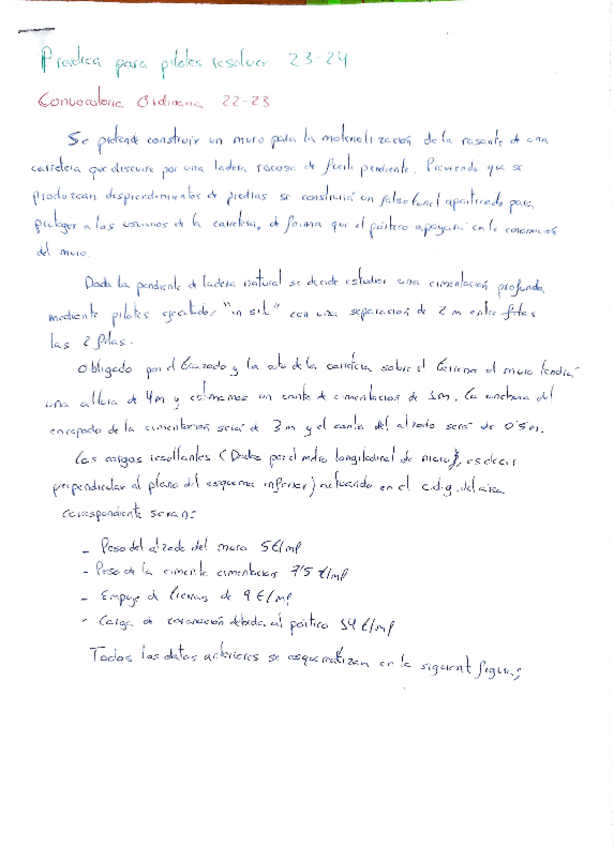 Practica para pilotes resolver 23-24
Convocatoria Ordinaria 22-23
Se pretende construir un muro para la materialización de la rasante de una
carretera que discurre por una ladera rocosa de fuerte pendiente. Previendo que se
produzcan desprendimientos de piedras se construirá un falso túnel aporticado para
proteger a los usuarios de la carretera, de forma que el pórtico apoyará en la coronación
del muro.
Dada la pendiente de ladera natural se decide estudiar una cimentación profunda
mediante pilotes ejecutados "in situ" con una separación de 2 m entre
las 2 filas.
Obligado por el trazado y la cota de la carretera sobre el terreno el muro tendrá
una altura de 4m y estimamos un canto de cimentación de 1m. La anchura del
encepado de la cimentación será de 3 m y el canto del alzado será de 0'5m.
Las cargas resultantes (Dadas por el metro longitudinal de muro, es decir
perpendicular al plano del esquema inferior) actuando en el c.d.g. del area
correspondiente seran:
- Peso del alzado del muro 5 t/ml
- Peso de la cimentación 7'5 t/ml
- Empuje de tierras de 9 t/ml
- Carga de coronación debida al pórtico 14 t/ml
Todos los datos anteriores se esquematizan en la siguient figura;